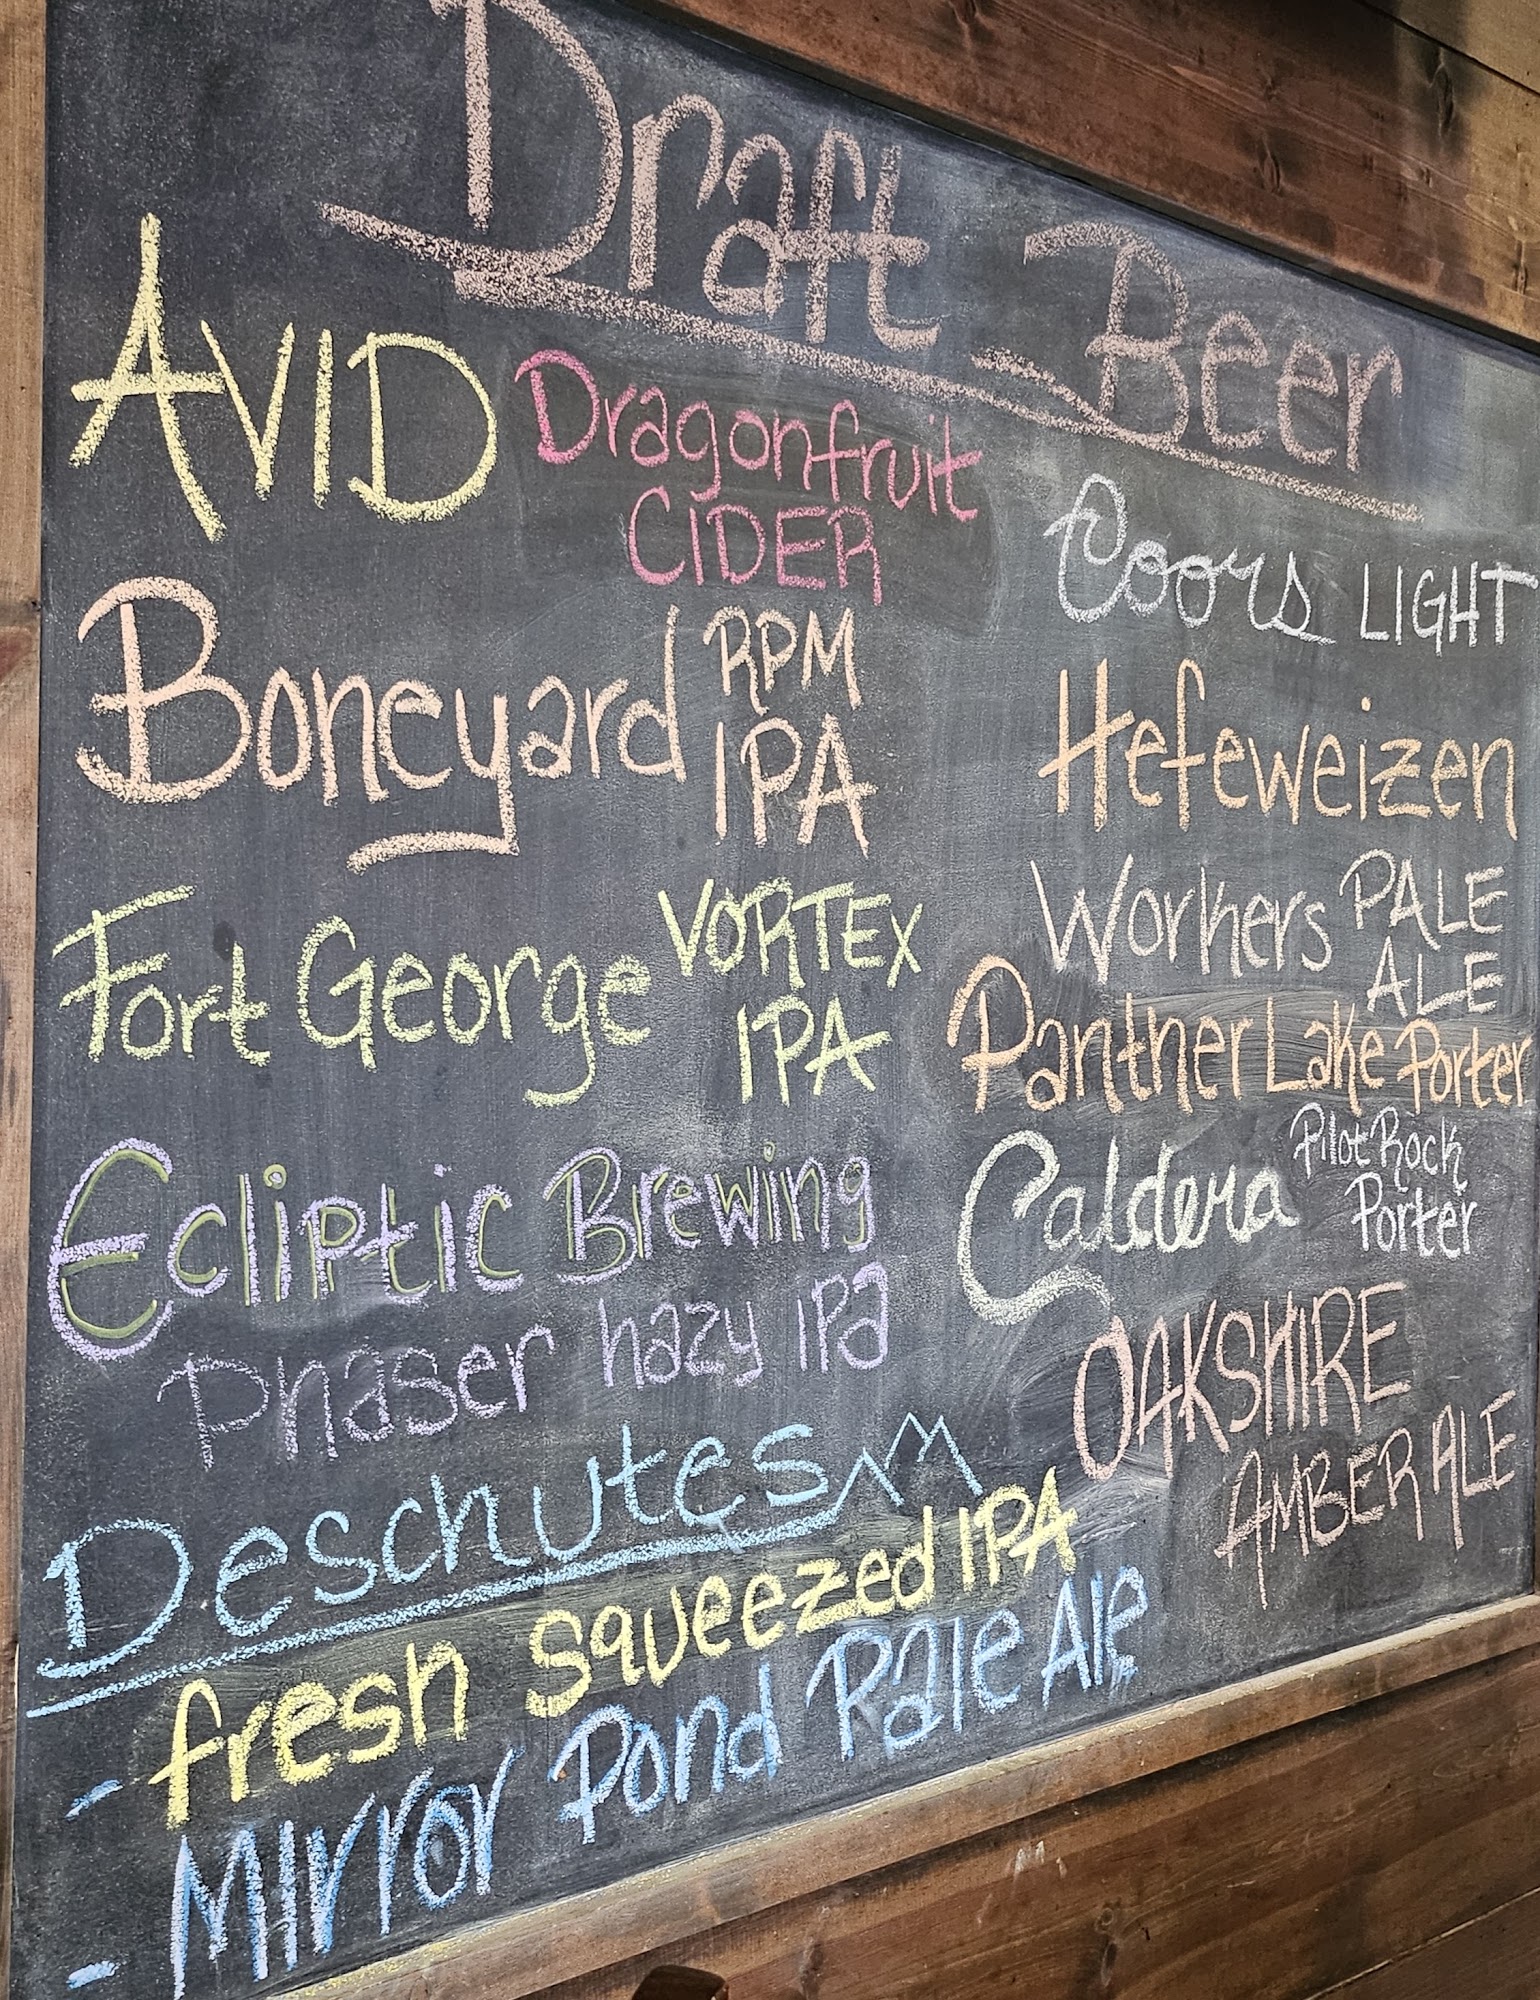 Draft Beer
AVID Dragonfruit
CIDER
Boneyard RPM
IPA
Fort George VORTEX
IPA
Ecliptic Brewing
Phaser hazy IPa
Deschutes
- fresh squeezed IPA
- Mirror Pond Pale Ale
Coors LIGHT
Hefeweizen
Workers PALE
ALE
Panther Lake Porter
Caldera Pilot Rock
Porter
OAKSHIRE
AMBER ALE